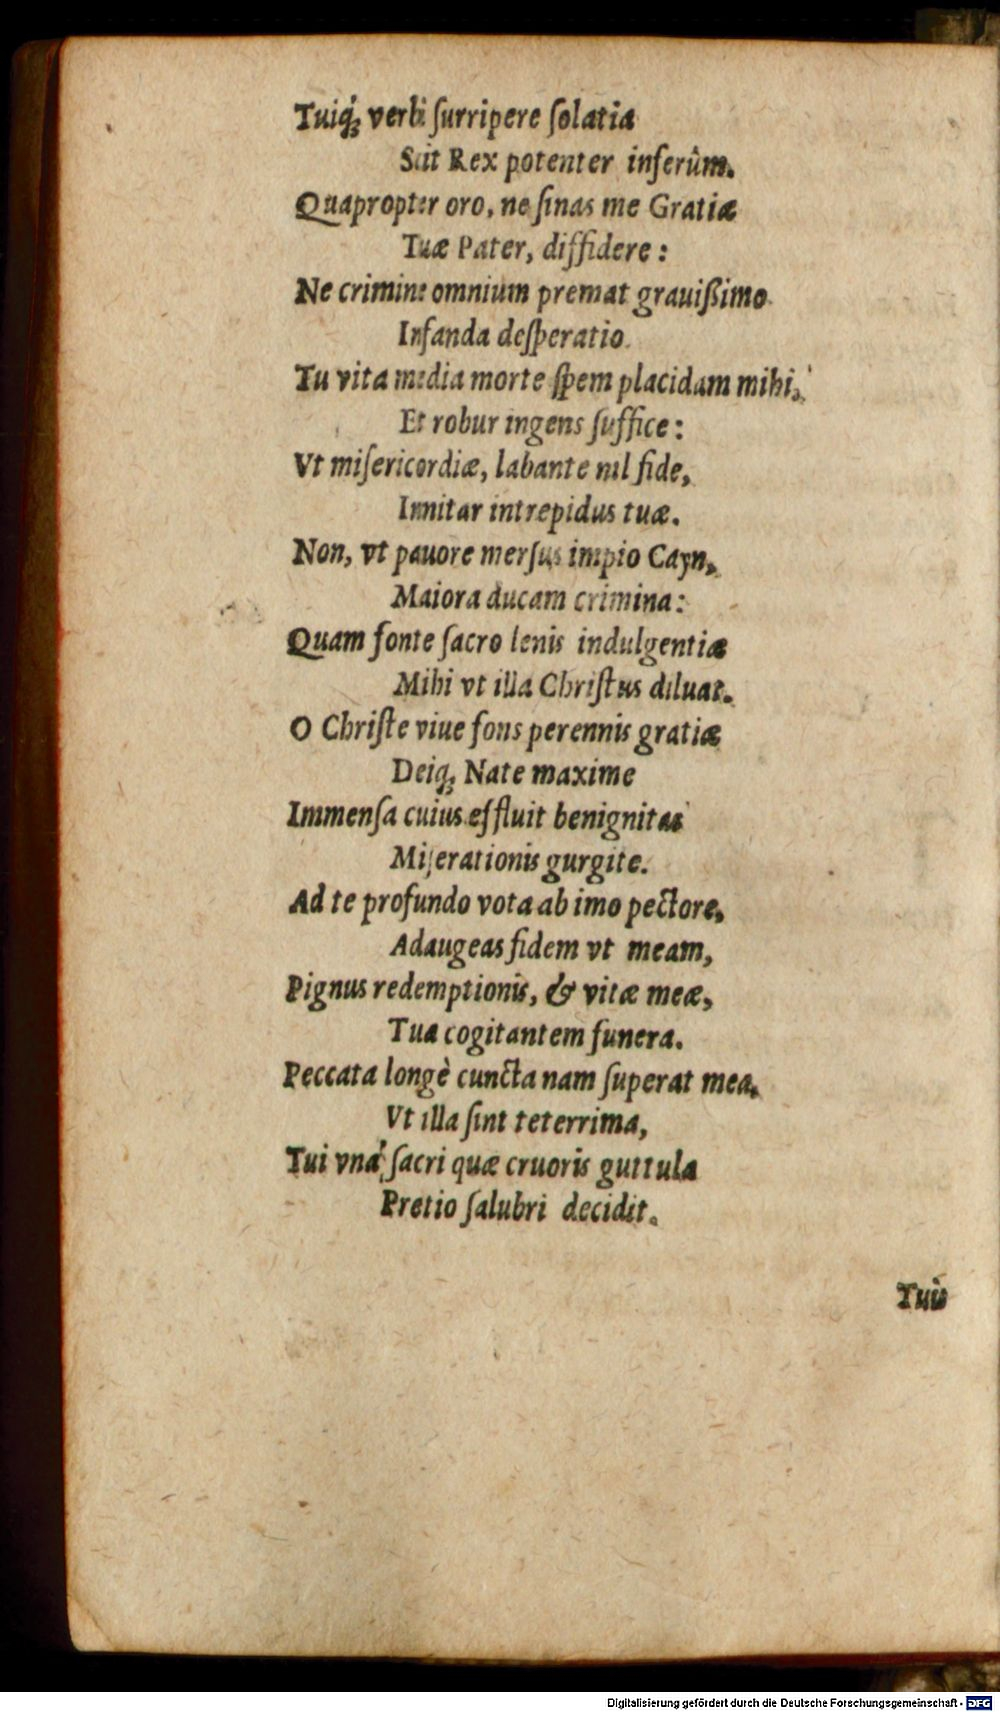 Tuiq́; verbi ſurripere ſolatia
Scit Rex potenter inferûm.
Quapropter oro, ne ſinas me Gratiæ
Tuæ Pater, diffidere:
Ne crimine omnium premat grauiſsimo
Infanda deſperatio.
Tu vita media morte ſpem placidam mihi,
Et robur ingens ſuffice:
Vt miſericordiæ, labante nil fide,
Innitar intrepidus tuæ.
Non, vt pauore merſus impio Cayn,
Maiora ducam crimina:
Quam fonte ſacro lenis indulgentiæ
Mihi vt illa Chriſtus diluat.
O Chriſte viue fons perennis gratiæ
Deiq; Nate maxime
Immenſa cuius effluit benignitas
Miſerationis gurgite.
Ad te profundo vota ab imo pectore,
Adaugeas fidem vt meam,
Pignus redemptionis, & vitæ meæ,
Tua cogitantem funera.
Peccata longè cuncta nam ſuperat mea,
Vt illa ſint teterrima,
Tui vna ſacri quæ cruoris guttula
Pretio ſalubri decidit.
Tuis
Digitalisierung gefördert durch die Deutsche Forschungsgemeinschaft - DFG